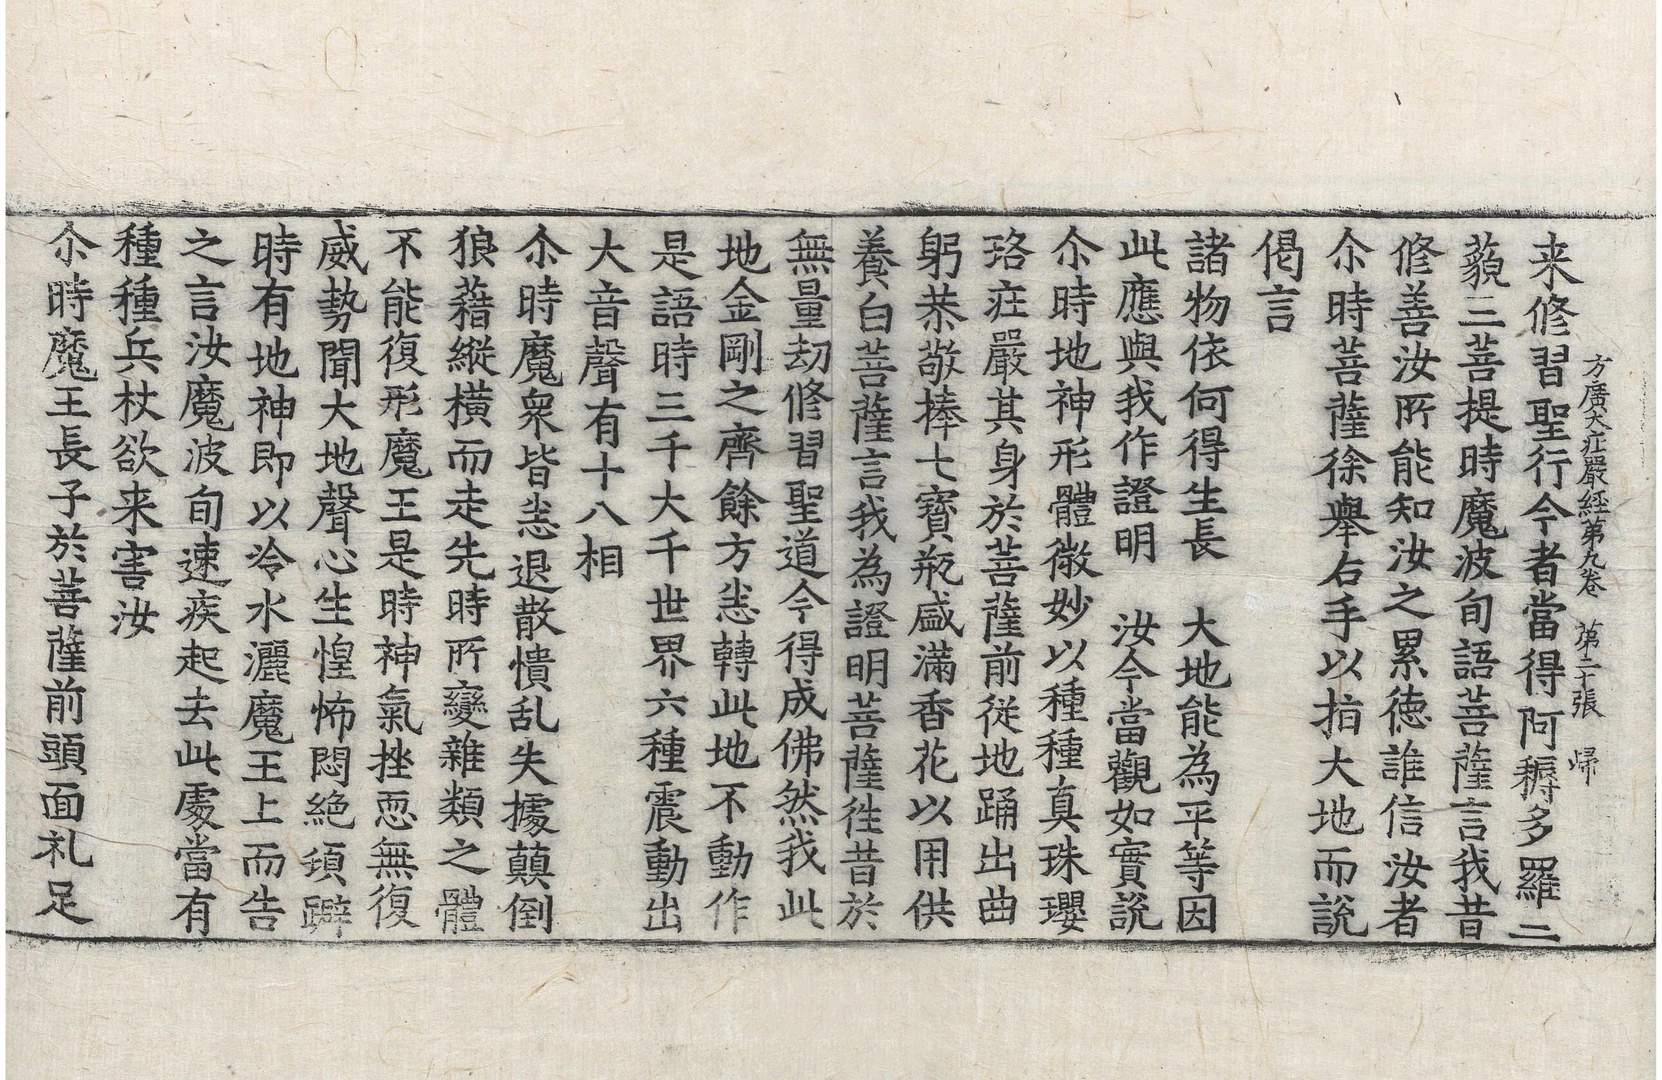 方廣大莊嚴經第九卷 第二十張 歸
来修習聖行今者當得阿耨多羅三
藐三菩提時魔波旬語菩薩言我昔
修善汝所能知汝之累德誰信汝者
尒時菩薩徐舉右手以指大地而說
偈言
諸物依何得生長 大地能為平等因
此應與我作證明 汝今當觀如實說
尒時地神形體微妙以種種真珠瓔
珞莊嚴其身於菩薩前從地踊出曲
躬恭敬捧七寶瓶盛滿香花以用供
養白菩薩言我為證明菩薩往昔於
無量劫修習聖道今得成佛然我此
地金剛之齊餘方悉轉此地不動作
是語時三千大千世界六種震動出
大音聲有十八相
尒時魔衆皆悉退散憒乱失據顛倒
狼藉縱橫而走先時所變雜類之體
不能復形魔王是時神氣挫恧無復
威勢聞大地聲心生惶怖悶絶頃躃
時有地神即以冷水灑魔王上而告
之言汝魔波旬速疾起去此處當有
種種兵杖欲来害汝
尒時魔王長子於菩薩前頭面礼足